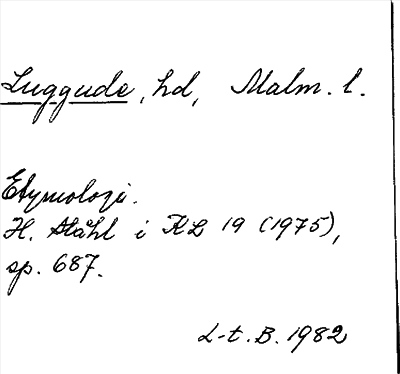 Luggude, hd, Malm. l.
Etymologi.
H. Ståhl i KL 19 (1975),
sp. 687.
L-t. B. 1982